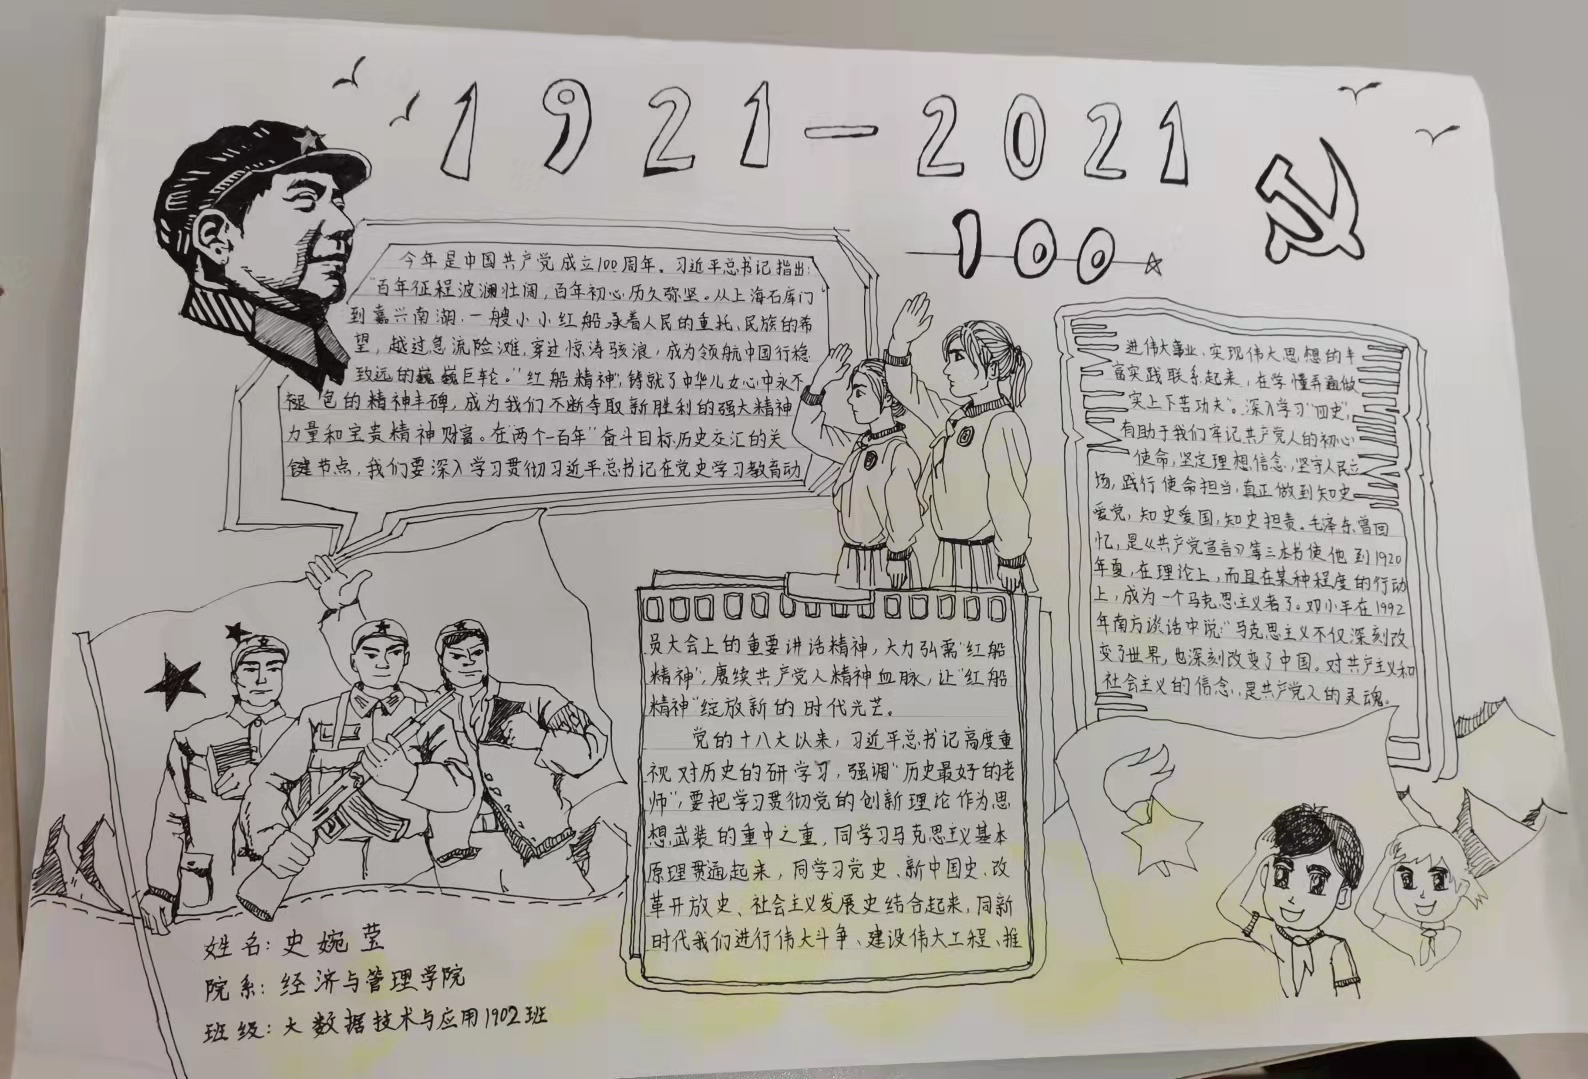 1921-2021
100
今年是中国共产党成立100周年。习近平总书记指出:
"百年征程波澜壮阔,百年初心历久弥坚。从上海石库门
到嘉兴南湖,一艘小小红船承着人民的重托、民族的希
望,越过急流险滩,穿过惊涛骇浪,成为领航中国行稳
致远的巍巍巨轮。"红船精神",铸就了中华儿女心中永不
褪色的精神丰碑,成为我们不断夺取新胜利的强大精神
力量和宝贵精神财富。在"两个一百年"奋斗目标历史交汇的关
键节点,我们要深入学习贯彻习近平总书记在党史学习教育动
员大会上的重要讲话精神,大力弘扬"红船
精神",赓续共产党人精神血脉,让"红船
精神"绽放新的时代光芒。
党的十八大以来,习近平总书记高度重
视对历史的研学习,强调"历史最好的老
师",要把学习贯彻党的创新理论作为思
想武装的重中之重,同学习马克思主义基本
原理贯通起来,同学习党史、新中国史、改
革开放史、社会主义发展史结合起来,同新
时代我们进行伟大斗争、建设伟大工程、推
进伟大事业、实现伟大思想的丰
富实践联系起来,在学懂弄通做
实上下苦功夫"。深入学习"四史",
有助于我们牢记共产党人的初心
使命,坚定理想信念,坚守人民立
场,践行使命担当,真正做到知史
爱党,知史爱国,知史担责。毛泽东曾回
忆,是《共产党宣言》等三本书使他到1920
年夏,在理论上,而且在某种程度的行动
上,成为一个马克思主义者了。邓小平在1992
年南方谈话中说:"马克思主义不仅深刻改
变了世界,也深刻改变了中国。对共产主义和
社会主义的信念,是共产党人的灵魂。
姓名:史婉莹
院系:经济与管理学院
班级:大数据技术与应用1902班